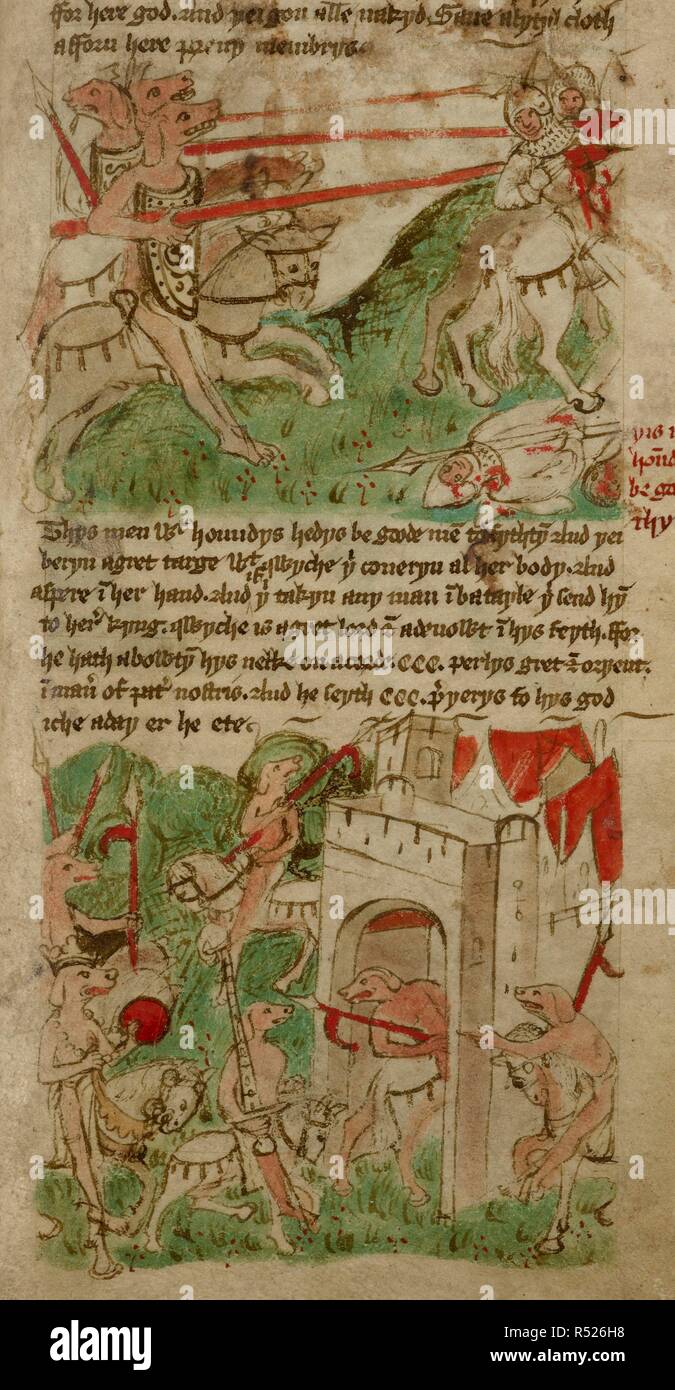 ffor here god. And yei gon alle nakyd. Saue a lytyl cloth
afforn here preuy membrys
yis i
be go
thy
Thys men wt houndys hedys be goode mē to fyhtȳ And yei
beryn a gret targe wt qwyche yi coueryn al her body. And
a spere ī her hand. And yi takyn any man ī batayle yi send hȳ
to her kyng. qwyche is a gret lord a deuowt ī hys feyth. ffor
he hath abowtȳ hys nekke on a corde. CCC. perlys gret oryent.
ī man̄ of pat̄ nostris. And he seyth CCC. pyerys to hys god
iche a day er he ete
alamy
Image ID: R526H8
www.alamy.com